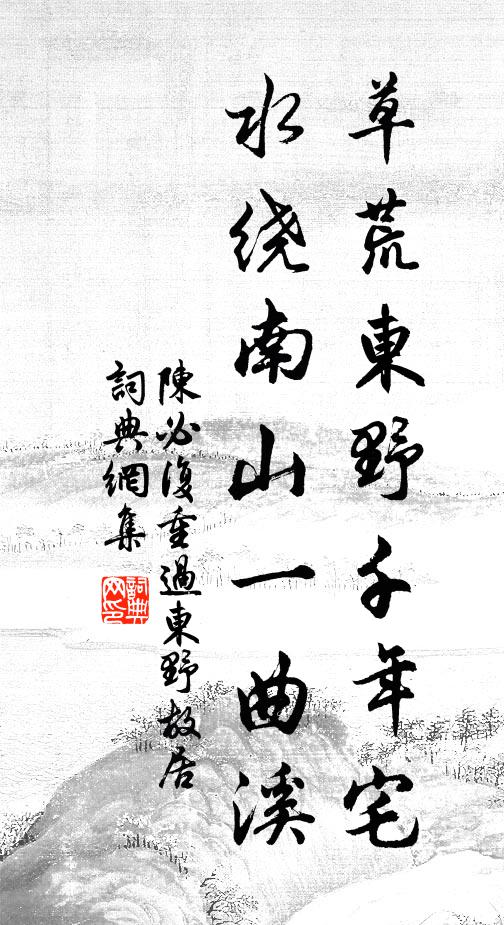 草荒東野千年宅
水绕南山一曲溪
陳必復重過東野故居
詞典網集
詞典网印